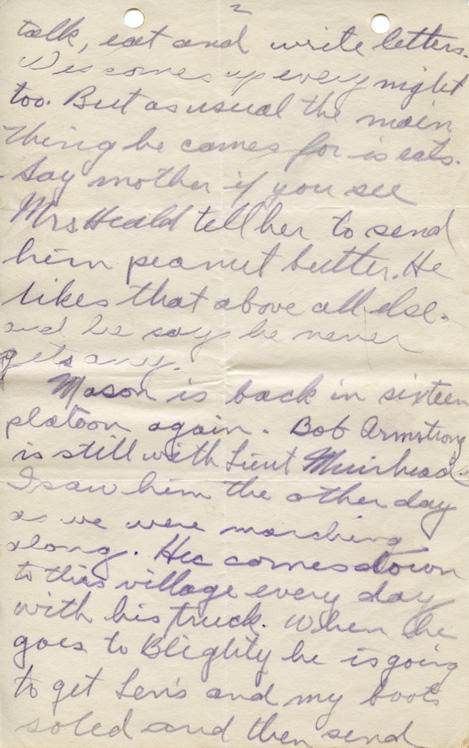 2
talk, eat and write letters.
Wes comes up every night
too. But as usual the main
thing he comes for is eats.
Say mother if you see
Mrs Heald tell her to send
him peanut butter. He
likes that above all else.
and he says he never
gets any.
Mason is back in sixteen
platoon again. Bob Armstrong
is still with Lieut Muirhead
I saw him the other day
as we were marching
along. He comes down
to this village every day
with his truck. When he
goes to Blighty he is going
to get Len's and my boots
soled and then send